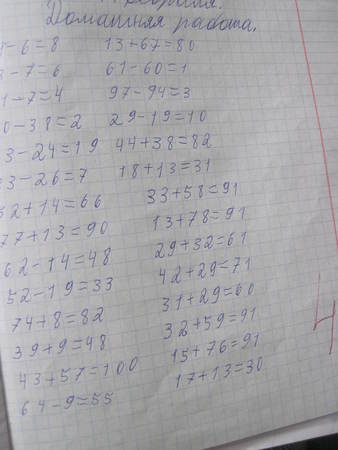 февраля.
Домашняя работа.
-6=8 13+67=80
-7=6 61-60=1
1-7=4 97-94=3
0-38=2 29-19=10
3-24=19 44+38=82
3-26=7 18+13=31
52+14=66 33+58=91
77+13=90 13+78=91
62-14=48 29+32=61
52-19=33 42+29=71
74+8=82 31+29=60
39+9=48 32+59=91
43+57=100 15+76=91
64-9=55 17+13=30
4